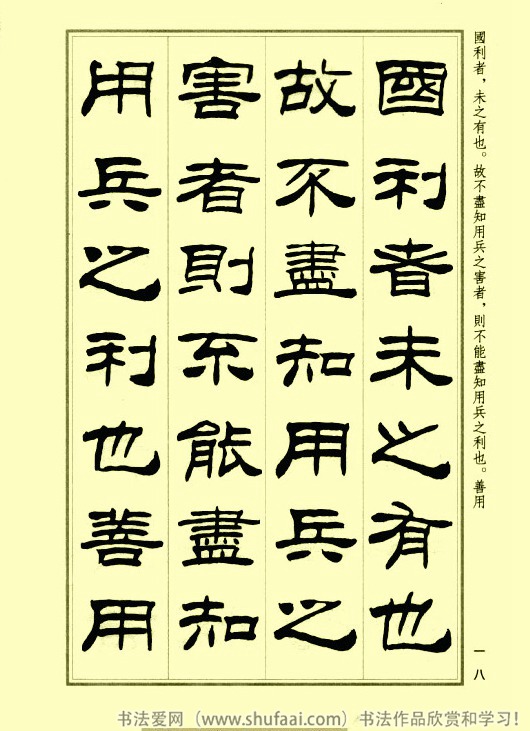 國利者未之有也
故不盡知用兵之
害者則不能盡知
用兵之利也善用
國利者，未之有也。故不盡知用兵之害者，則不能盡知用兵之利也。善用
一八
书法爱网（www.shufaai.com）书法作品欣赏和学习！